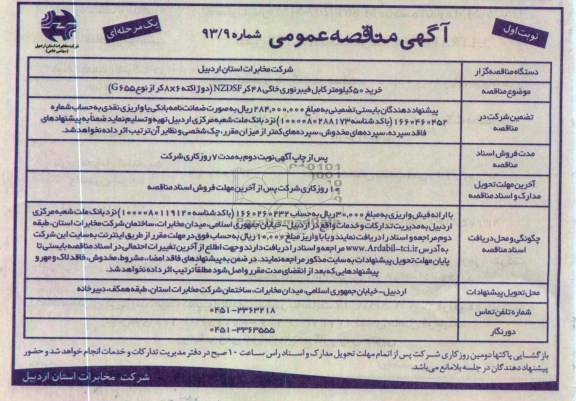 نوبت اول
آگهی مناقصه عمومی شماره ۹۳/۹
یک مرحله‌ای
شرکت مخابرات استان اردبیل
(سهامی خاص)
دستگاه مناقصه گزار
شرکت مخابرات استان اردبیل
موضوع مناقصه
خرید ۵۰ کیلومتر کابل فیبرنوری خاکی ۴۸ کر NZDSF (دوژاکته ۸×۶ کر از نوع G655)
تضمین شرکت در مناقصه
پیشنهاد دهندگان بایستی تضمینی به مبلغ ۲۸۴,۰۰۰,۰۰۰ ریال به صورت ضمانت نامه بانکی یا واریز نقدی به حساب شماره
۱۶۶۰۴۶۰۴۵۲ (باکد شناسه ۱۰۰۰۰۸۰۲۸۸۱۷۳) نزد بانک ملت شعبه مرکزی اردبیل تهیه و تسلیم نماید ضمناً به پیشنهادهای
فاقد سپرده، سپرده‌های مخدوش، سپرده‌های کمتر از میزان مقرر، چک شخصی و نظایر آن ترتیب اثر داده نخواهد شد.
مدت فروش اسناد مناقصه
پس از چاپ آگهی نوبت دوم به مدت ۷ روز کاری شرکت
آخرین مهلت تحویل مدارک و اسناد مناقصه
۱۰ روز کاری شرکت پس از آخرین مهلت فروش اسناد مناقصه
چگونگی و محل دریافت اسناد مناقصه
با ارائه فیش واریزی به مبلغ ۳۰۰,۰۰۰ ریال به حساب ۱۶۶۰۲۶۰۲۳۲ (باکد شناسه ۱۰۰۰۰۸۰۱۱۹۱۲۰) نزد بانک ملت شعبه مرکزی
اردبیل به مدیریت تدارکات و خدمات واقع در اردبیل - خیابان جمهوری اسلامی، میدان مخابرات، ساختمان شرکت مخابرات استان، طبقه
دوم مراجعه و اسناد را دریافت نمایند و یا با واریز مبلغ ۱۰۰,۰۰۰ ریال به حساب فوق در مهلت مقرر از طریق اینترنت به سایت این شرکت
به آدرس www.Ardabil-tci.ir مراجعه و اسناد را دریافت دارند و جهت اطلاع از آخرین تغییرات احتمالی در اسناد مناقصه بایستی تا
پایان مهلت تحویل پیشنهادات به سایت مذکور مراجعه نمایند. در ضمن به پیشنهادهای فاقد امضاء، مشروط، مخدوش، فاقد لاک و مهر و
پیشنهادهایی که بعد از انقضای مدت مقرر واصل شود مطلقا ترتیب اثر داده نخواهد شد.
محل تحویل پیشنهادات
اردبیل - خیابان جمهوری اسلامی، میدان مخابرات، ساختمان شرکت مخابرات استان، طبقه همکف، دبیرخانه
شماره تلفن تماس
۰۴۵۱-۳۳۶۳۲۱۸
دورنگار
۰۴۵۱-۳۳۶۳۵۵۵
بازگشایی پاکتها دومین روز کاری شرکت پس از اتمام مهلت تحویل مدارک و اسناد راس ساعت ۱۰ صبح در دفتر مدیریت تدارکات و خدمات انجام خواهد شد و حضور
پیشنهاد دهندگان در جلسه بلامانع می‌باشد.
شرکت مخابرات استان اردبیل